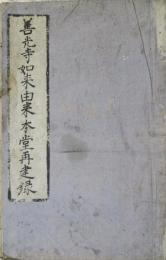 善光寺如来由来本堂再建録